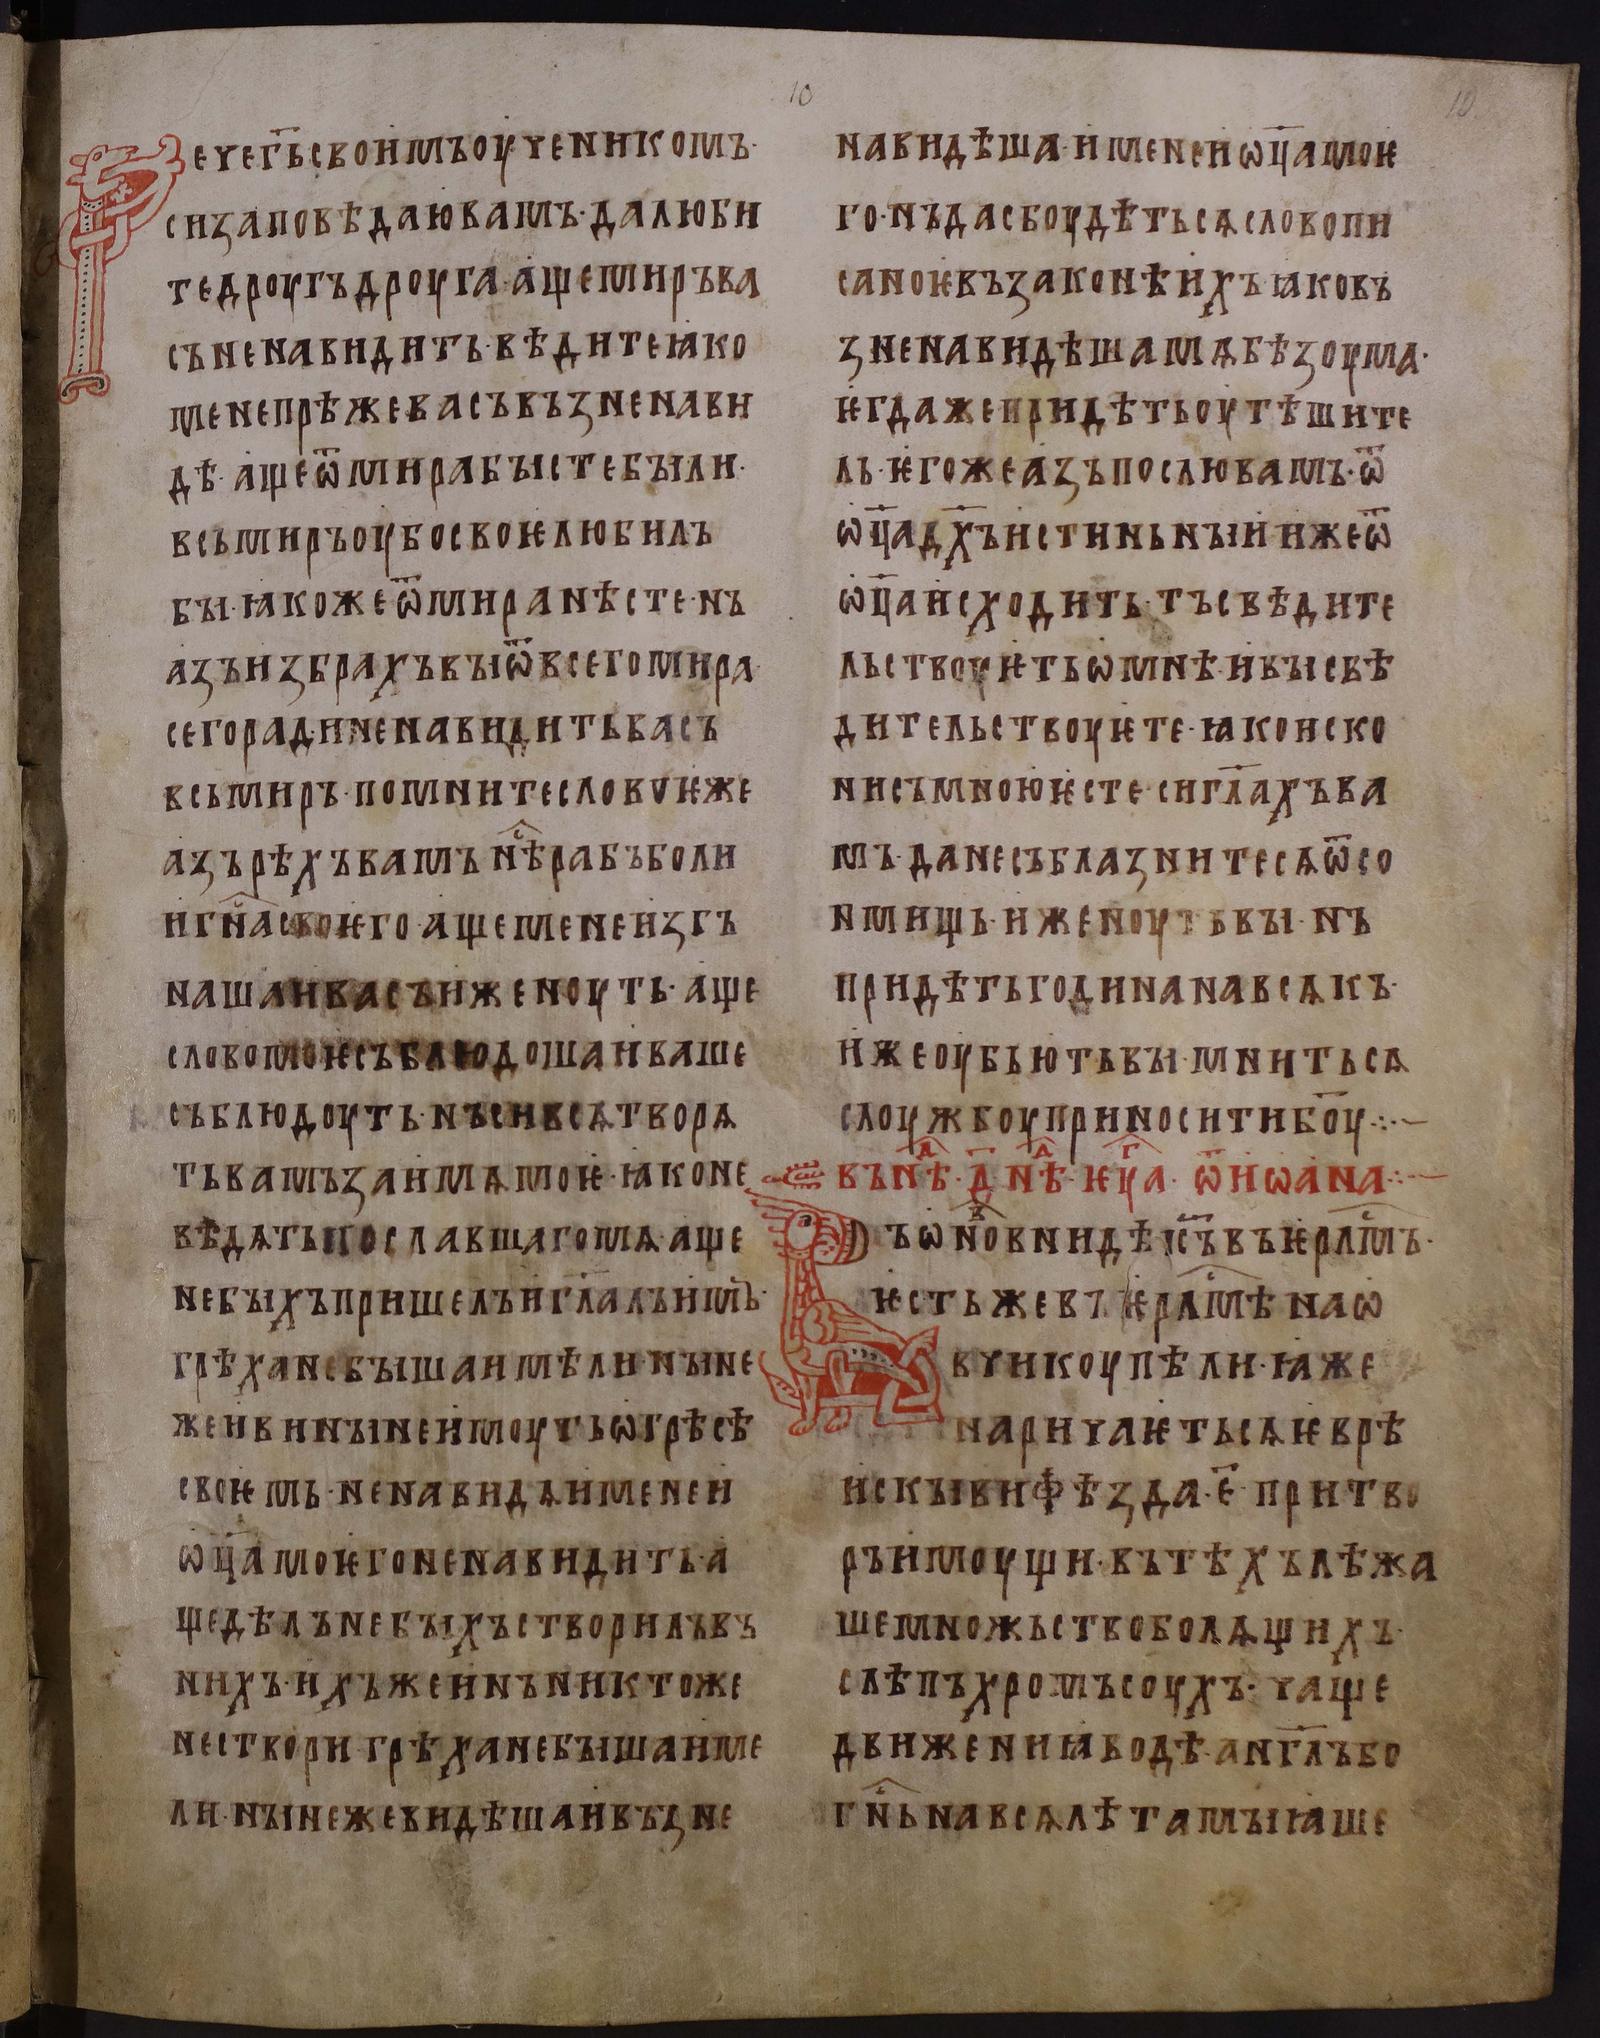 10
10
Рече г҃ь своимъ оученикомъ·
си заповѣдаю вамъ· да люби
те дроугъ дроуга· аще миръ ва
съ ненавидить· вѣдите ꙗко
мене прѣже васъ възненави
дѣ· аще ѿ мира бысте были·
весь миръ оубо своѥ любилъ
бы· ꙗкоже ѿ мира нѣсте· нъ
азъ избрахъ вы ѿ всего мира·
сего ради ненавидить васъ
весь миръ· помните слово ѥже
азъ рѣхъ вамъ нѣ҇ рабъ боли
и г҃на своѥго· аще мене изгъ
наша и васъ иженоуть· аще
слово моѥ съблюдоша и ваше
съблюдоуть· нъ си всѧ творѧ
ть вамъ за имѧ моѥ· ꙗко не
вѣдѧть пославшаго мѧ· аще
не быхъ пришелъ и гл҃алъ имъ·
грѣха не быша имѣли· ныне
же и вины не имоуть ѡ грѣсѣ
своѥмь· ненавидѧи мене и
ѡц҃а моѥго ненавидить· а
ще дѣлъ не быхъ створилъ въ
нихъ· ихъже инъ никтоже
не створи грѣха не быша име
ли· ныне же видѣша и възне
навидѣша· и мене и ѡц҃а моѥ
го· нъ да сбоудѣться слово пи
саноѥ въ законѣ ихъ ꙗко въ
зненавидѣша мѧ бѣзоума·
ѥгда же придѣть оутѣшите
ль· ѥгоже азъ послю вамъ· ѿ
ѡц҃а дх҃ъ истиньныи иже ѿ
ѡц҃а исходить· тъ свѣдите
льствоуѥть ѡ мнѣ· и вы свѣ
дительствоуѥте· ꙗко иско
ни съ мною ѥсте· си гл҃ахъ ва
мъ· да не съблазните сѧ ѿ со
нмищь· иженоуть вы· нъ
придѣть година на всѧкъ·
иже оубьють вы· мнить сѧ
слоужбоу приносити б҃оу·:·—
въ нⷣѣ· д҃· нⷣѣ· ѥуⷢа· ѿ иѡана·:·—
Въ ѡноⷡ вниде і҃съ въ ѥрлⷭмъ·
ѥсть же въ ѥрлⷭмѣ на ѡ
вчи коупѣли· ꙗже
наричаѥть сѧ ѥврѣ
искы вифѣзда· е҃· притво
ръ имоущи· въ тѣхъ лѣжа
ше множьство болѧщихъ·
слѣпъ хромъ соухъ· чаще
движениꙗ водѣ· анг҃лъ бо
г҃нь на всѧ лѣта мыꙗше